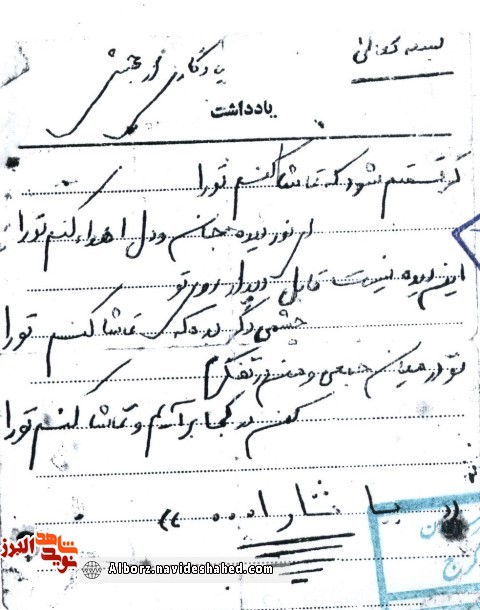 بسمه تعالی
یادگاری از جبهه
یادداشت
گر قسمتم شود که تماشا کنم تو را
ای نور دیده جان و دل اهداء کنم تو را
این دیده نیست قابل دیدار روی تو
چشمی دگر بده که تماشا کنم تو را
تو در میان جمعی و من در تفکرم
کز کجا برآیم و تماشا کنم تو را
«یا ثارا...»
کرج
شاهد
نوید
البرز
Alborz.navideshahed.com